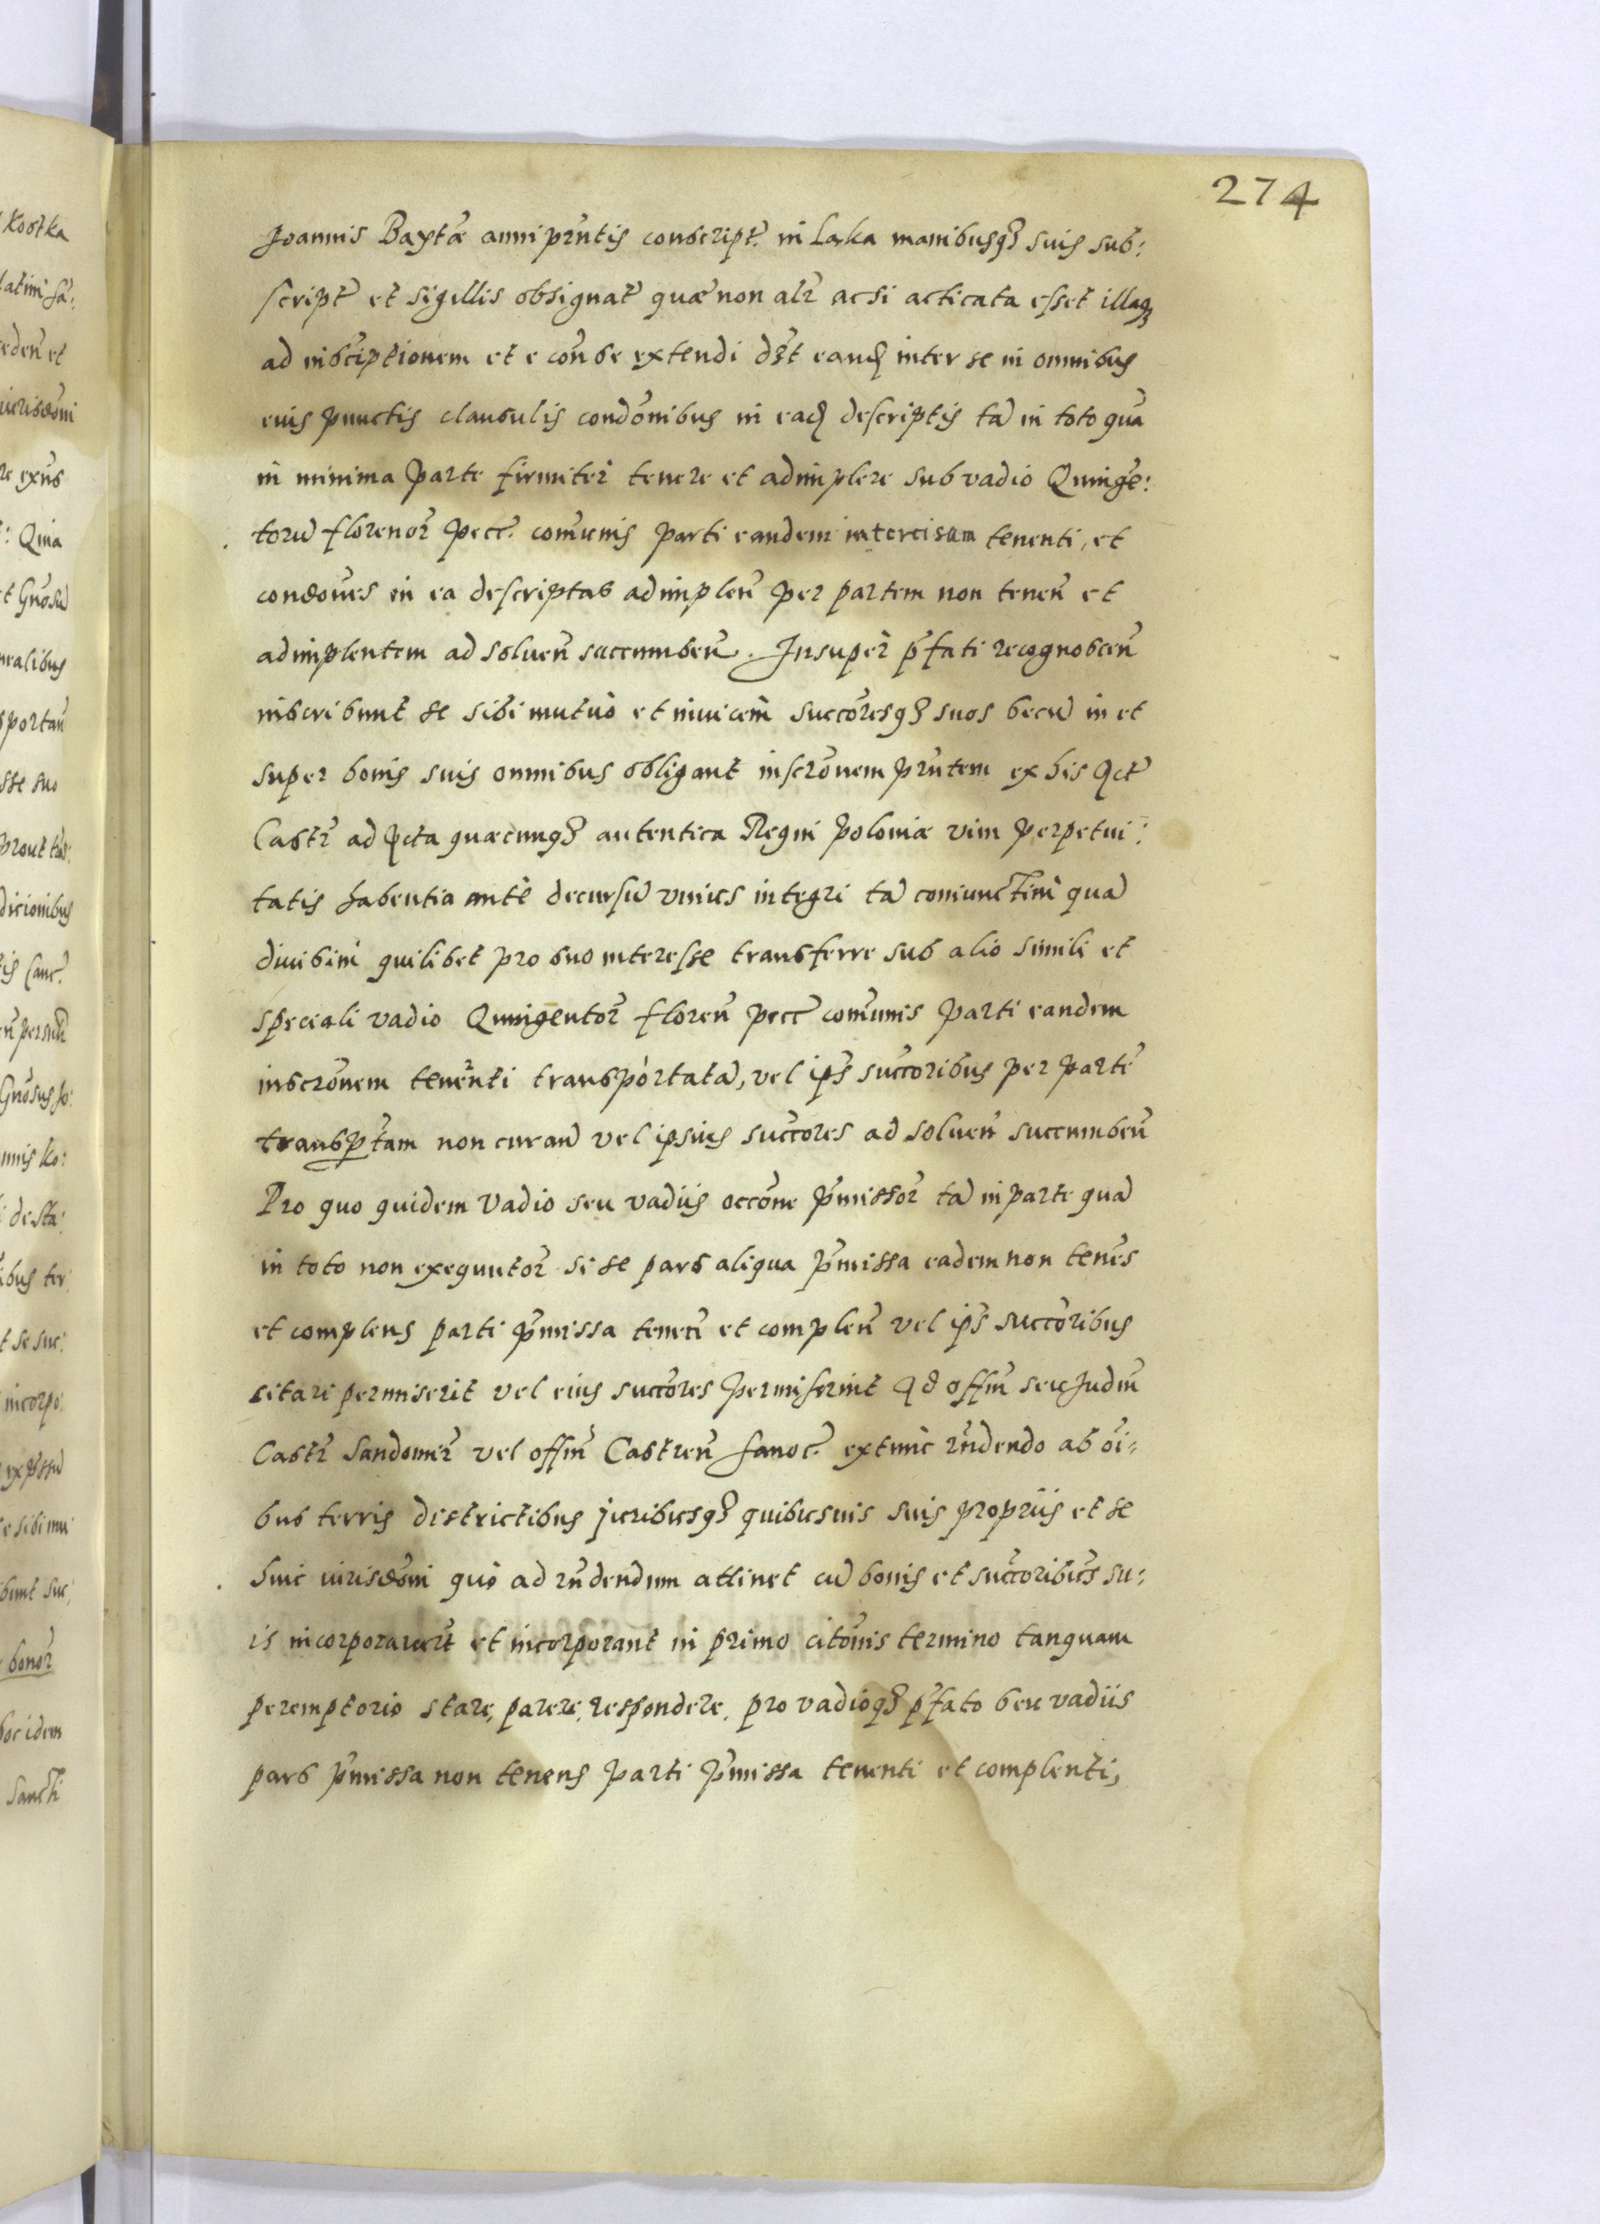 274
Joannis Baptæ anni prñtis conscript. in Laka manibusqȝ suis sub:
script et sigillis obsignat quæ non alr ac si acticata esset illaqȝ
ad inscriptionem et e conse extendi dēt eand inter se in omnibus
eius punctis clausulis condōnibus in ead descriptis tā in toto quā
in minima parte firmiter tenere et adimplere sub vadio Quingē:
torū florenor pecc. comūnis parti eandem intercisam tenenti, et
condōnes in ea descriptas adimplen per partem non tenen et
adimplentem ad soluen succumben. Insuper pfati recognoscen
inscribunt se sibi mutuò et inuicem succōresqȝ suos secū in et
super bonis suis omnibus obligant inscrōnem prñtem ex his Act
Castr ad Acta quæcunqȝ autentica Regni Poloniæ vim perpetui:
tatis habentia antè decursū vnius integri tā coniunctim quā
diuisim quilibet pro suo interesse transferre sub alio simili et
speciali vadio Quingentor floren pecc comūnis parti eandem
inscrōnem tenenti transportatā, vel ips succoribus per parte
transptam non curan vel ipsius succores ad soluen succumben
Pro quo quidem vadio seu vadiis occōne pmissor tā in parte quā
in toto non exequutor si se pars aliqua pmissa eadem non tenēs
et complens parti pmissa tenen et complen vel ips succoribus
citari permiserit vel eius succores permiserint Ad offm seu Judm
Castr Sandomir vel offm Castren Sanoc. extunc rñdendo ab oi-
bus terris districtibus juribusqȝ quibusuis suis propriis et se
huic iurisdōni quò ad rñdendum attinet cū bonis et succoribus su:
is incorporarunt et incorporant in primo citōnis termino tanquam
peremptorio stare, parere, respondere, pro vadioqȝ pfato seu vadiis
pars pmissa non tenens parti pmissa tenenti et complenti,